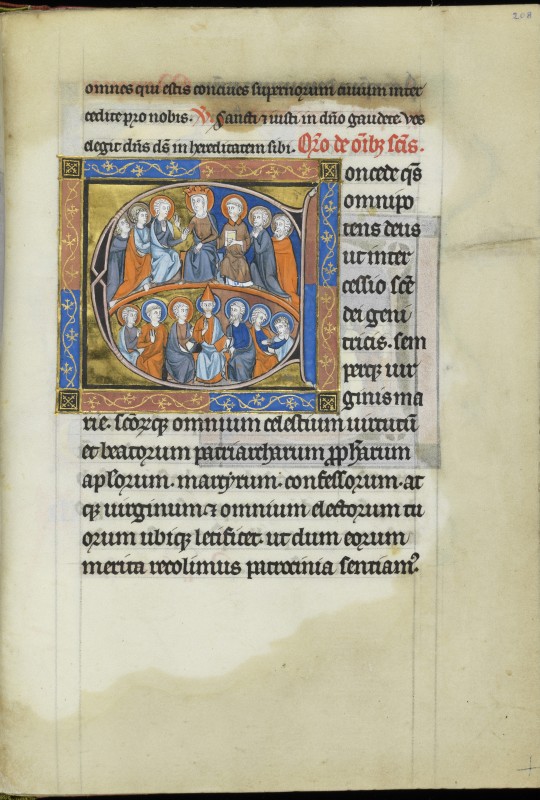 208
omnes qui estis conciues supernorum ciuium inter
cedite pro nobis. V. Sancti ⁊ iusti in dño gaudete. Vos
elegit dñs ds̄ in hereditatem sibi. Orō de oĩbꝫ scĩs.
Concede qs̄
omnipo
tens deus
ut inter
cessio scē
dei geni
tricis. sem
perqꝫ uir
ginis ma
rie. scōrꝫqꝫ omnium celestium uirtutū
et beatorum patriarcharum ꝓpharum
apl̄orum. martyrum. confessorum. at
qꝫ uirginum ⁊ omnium electorum tu
orum ubiqꝫ letificet. ut dum eorum
merita recolimus patrocinia sentiam⁹.